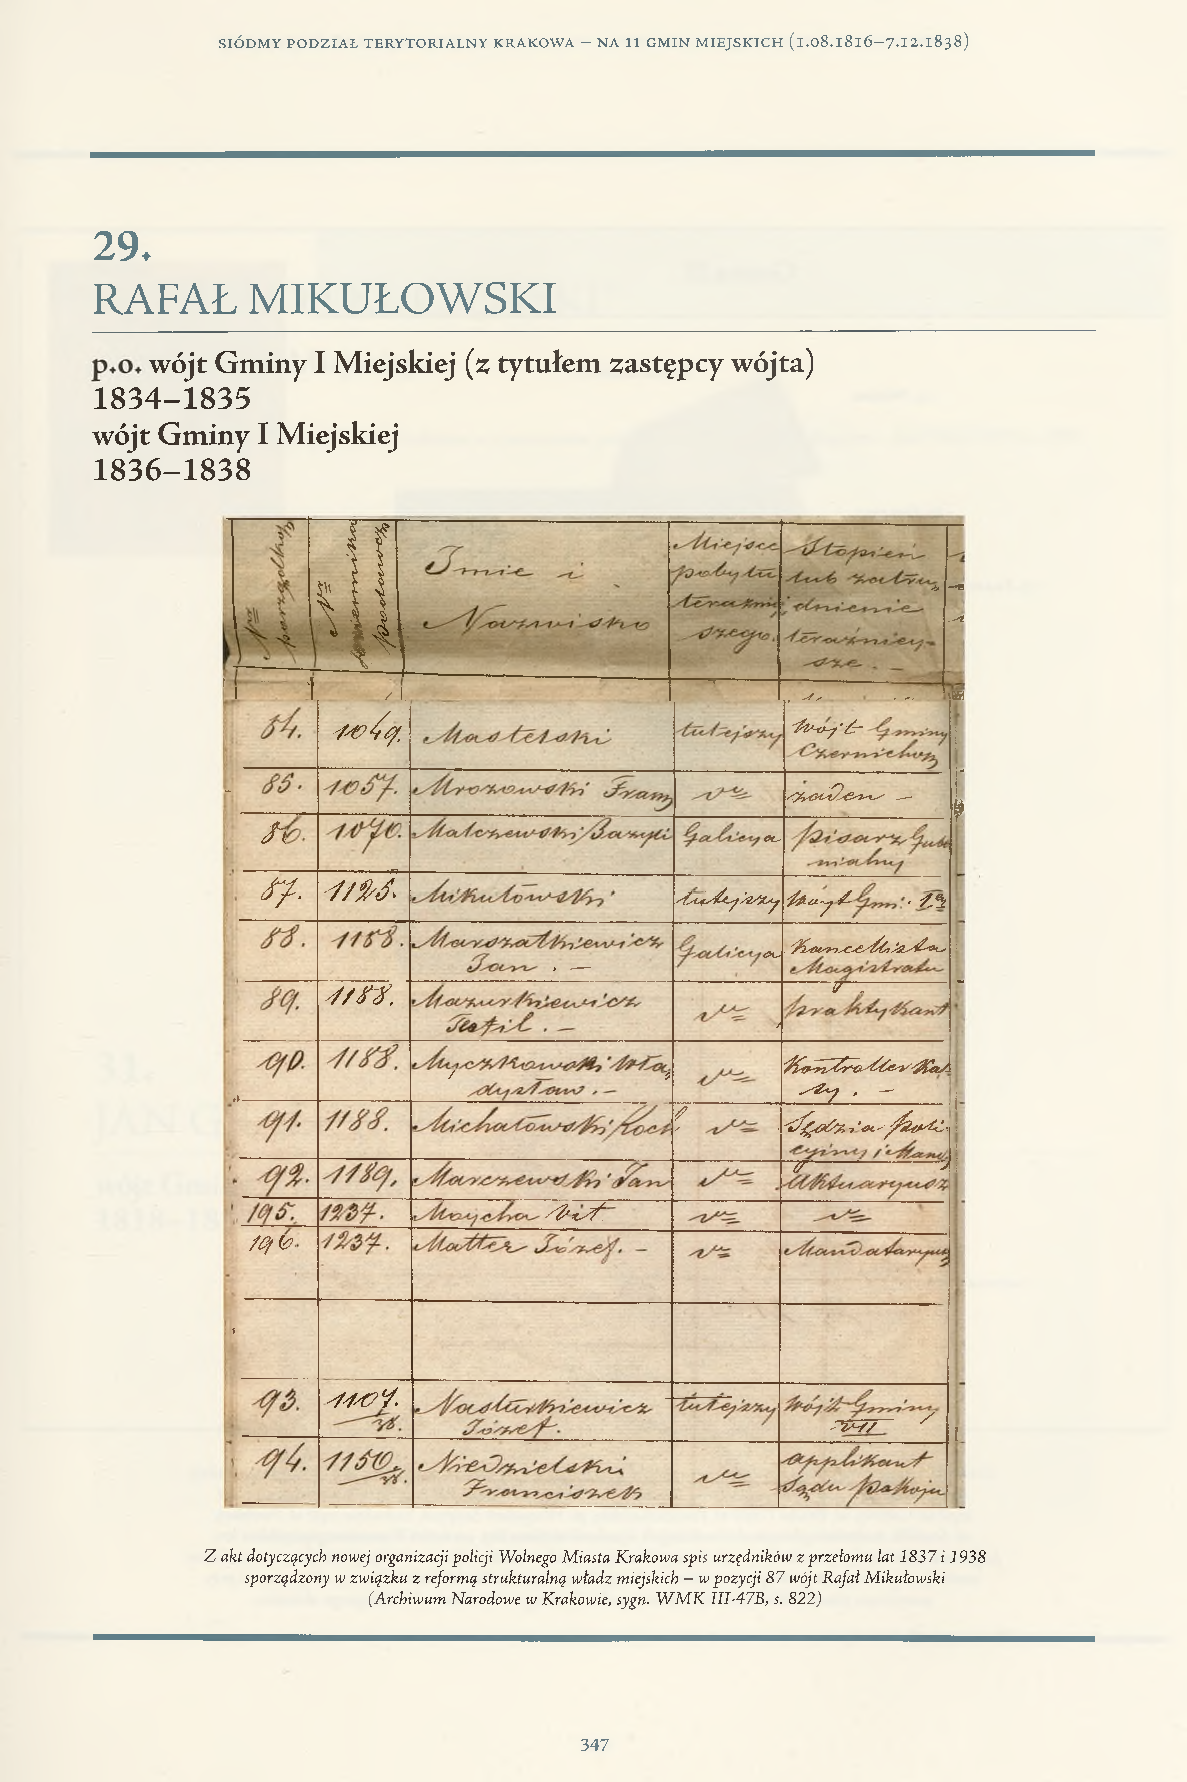 SIÓDMY PODZIAŁ TERYTORIALNY KRAKOWA – NA 11 GMIN MIEJSKICH (1.08.1816–7.12.1838)
29.
RAFAŁ MIKUŁOWSKI
p.o. wójt Gminy I Miejskiej (z tytułem zastępcy wójta)
1834–1835
wójt Gminy I Miejskiej
1836–1838
Nr porządkow.
Nr dziennika podawcz.
Imie i Nazwisko
Miejsce pobytu teraźniejszego.
Stopień lub zatrudnienie teraźniejsze. –
84. 1049. Mastelski tutejszy Wójt Gminy Czernichow
85. 1057. Mrozowski Fran żaden –
86. 1070. Malczewski Bazyli Galicya pisarz Gubernialny
87. 1125. Mikułowski tutejszy Wóyt Gmi: I
88. 1188. Marszałkiewicz Jan. – Galicya Kancellista Magistratu
89. 1188. Mazurkiewicz Teofil. – praktykant
90. 1188. Myczkowski Władysław. – Kontroller Kasy. –
91. 1188. Michałowski Roch Sędzia Policyjny i Mand
92. 1189. Marczewski Jan Aktuaryusz
195. 1237. Maycha Vit
196. 1237. Matter Józef. – Mandataryusz
93. 1107. Nasturkiewicz Józef. tutejszy Wójt Gminy VII
94. 1150. Niedzielski Franciszek applikant Sądu Pokoju
Z akt dotyczących nowej organizacji policji Wolnego Miasta Krakowa spis urzędników z przełomu lat 1837 i 1938
sporządzony w związku z reformą strukturalną władz miejskich – w pozycji 87 wójt Rafał Mikułowski
(Archiwum Narodowe w Krakowie, sygn. WMK III-47B, s. 822)
347